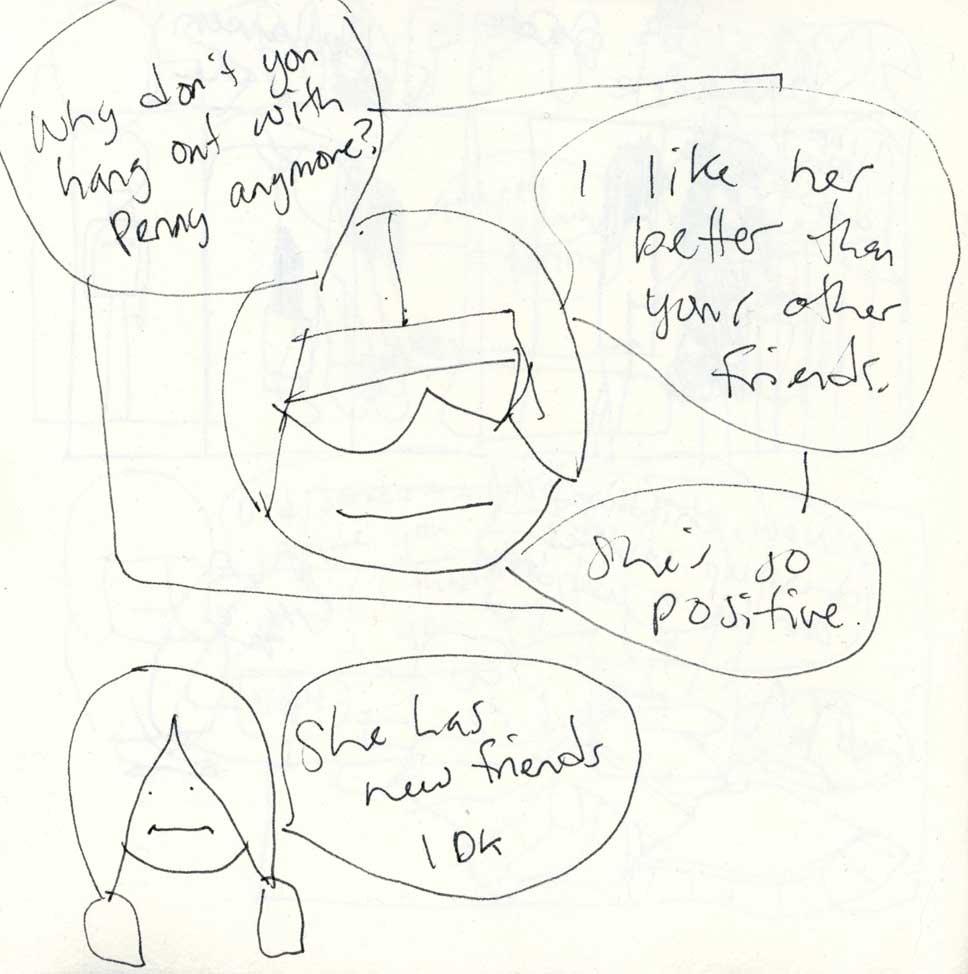 Why don't you
hang out with
Penny anymore?
I like her
better than
your other
friends.
She's so
positive.
She has
new friends
IDK